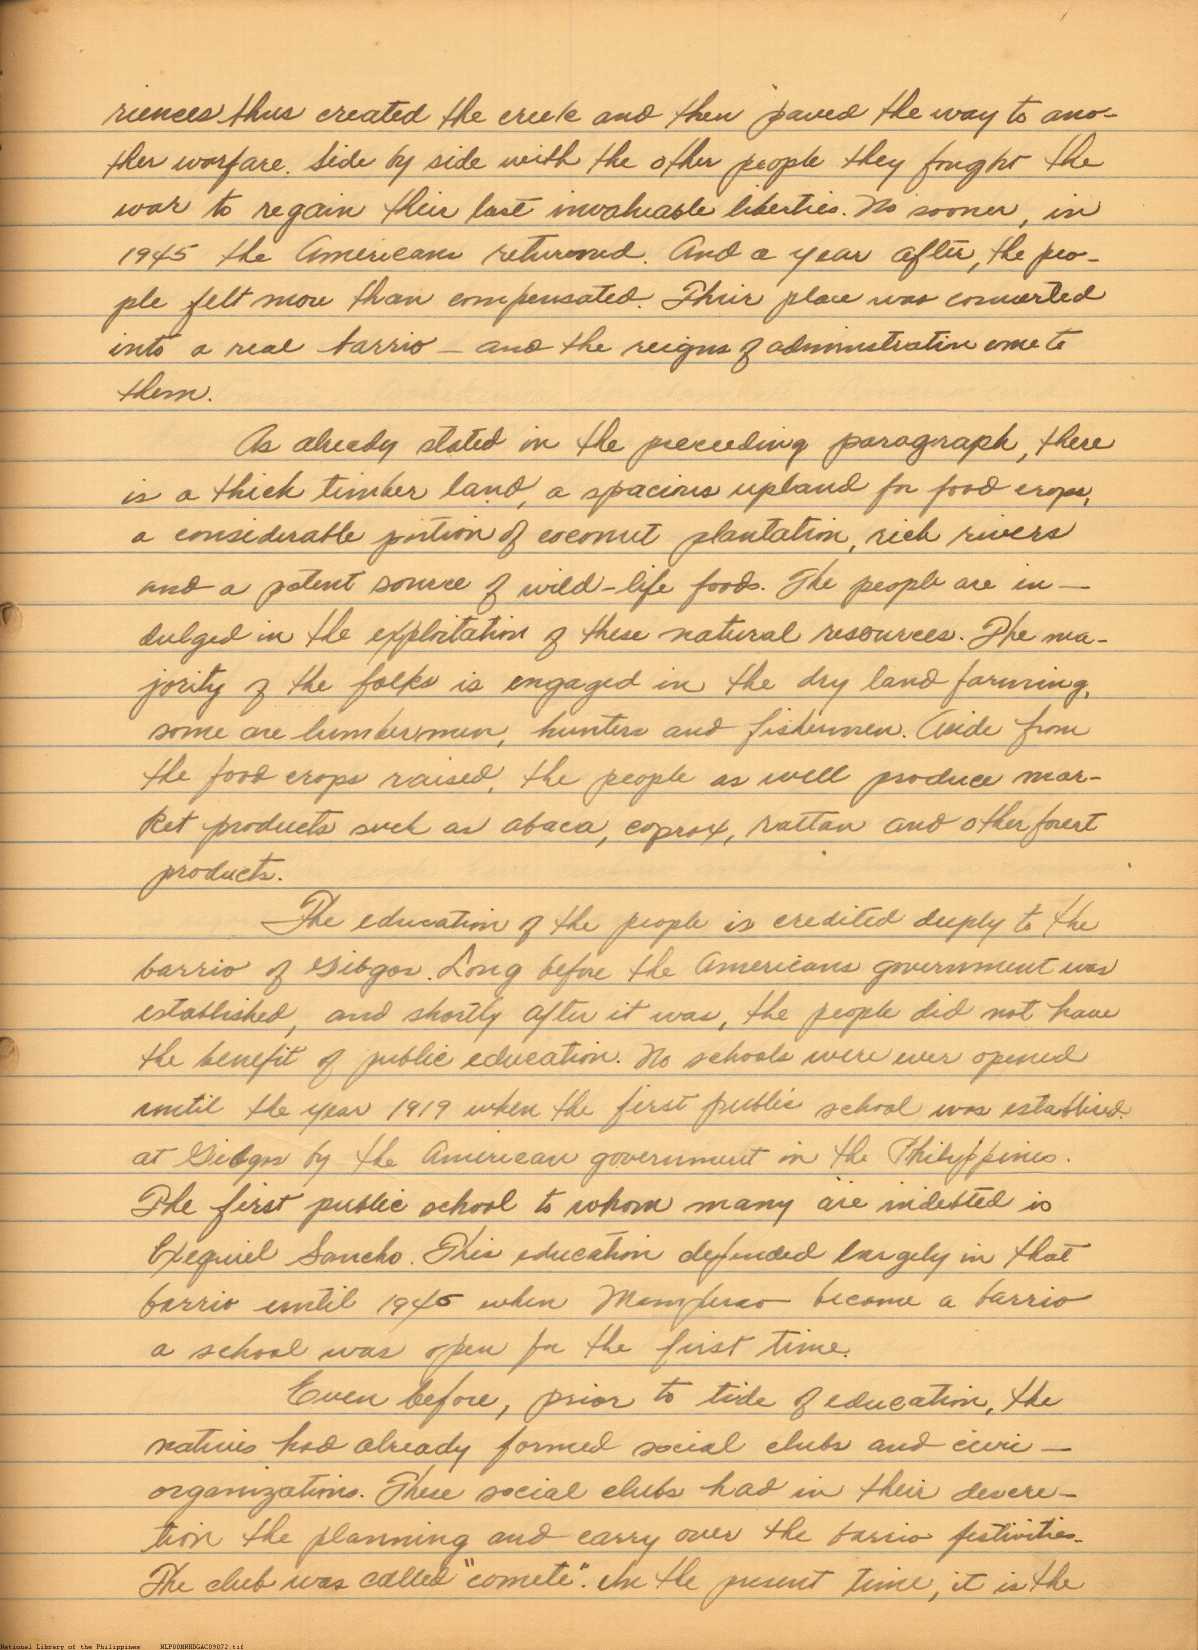 riences thus created the creek and then paved the way to ano-
ther warfare. Side by side with the other people they fought the
war to regain their last invaluable liberties. No sooner, in
1945 the Americans returned. And a year after, the peo-
ple felt more than compensated. Their place was converted
into a real barrio - and the reigns of administration come to
them.
As already stated in the preceeding paragraph, there
is a thick timber land, a spacious upland for food crops,
a considerable portion of coconut plantation, rich rivers
and a potent source of wild-life foods. The people are in-
dulged in the exploitation of these natural resources. The ma-
jority of the folks is engaged in the dry land farming,
some are lumbermen, hunters and fishermen. Aside from
the food crops raised, the people as well produce mar-
ket products such as abaca, coprax, rattan and other forest
products.
The education of the people is credited deeply to the
barrio of Gibgos. Long before the Americans government was
established, and shortly after it was, the people did not have
the benefit of public education. No schools were ever opened
until the year 1919 when the first public school was establised
at Gibgos by the American government in the Philippines.
The first public school to whom many are indebted is
Exequiel Sancho. This education depended largely in that
barrio until 1945 when become a barrio
a school was open for the first time.
Even before, prior to tide of education, the
natives had already formed social clubs and civic-
organizations. These social clubs had in their descre-
tion the planning and carry over the barrio festivities.
The club was called "comete". In the present time, it is the
National Library of the Philippines NLP00MNHDGAC09072.tif